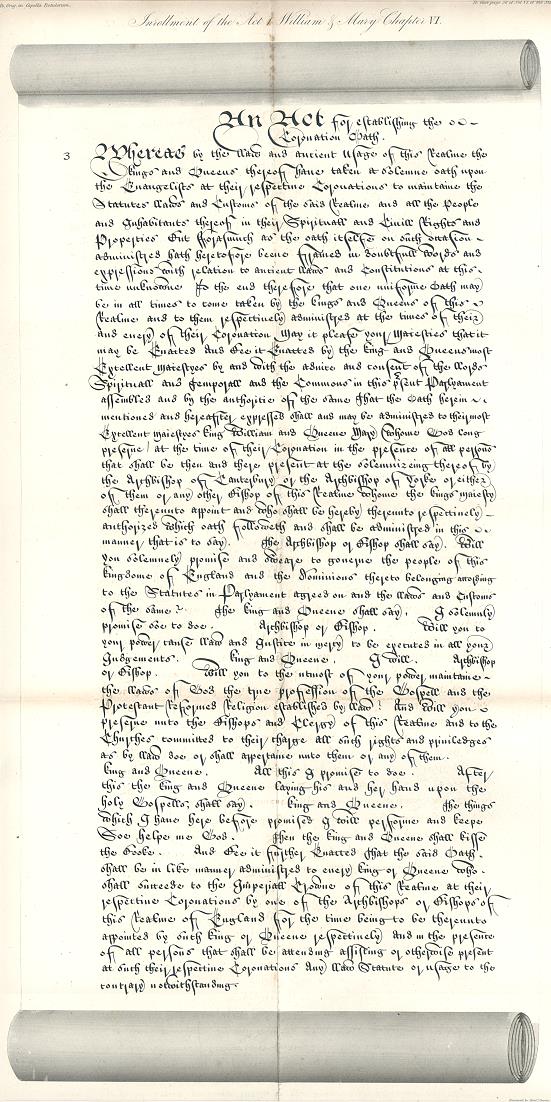 Inrollment of the Act 1 William & Mary Chapter VI.
An Act for establishing the
Coronation Oath.
3 Whereas by the Law and ancient Usage of this Realme the
Kings and Queens thereof have taken a solemne oath upon
the Evangelists at their respective Coronations to maintaine the
Statutes Laws and Customs of the said Realme and all the People
and Inhabitants thereof in their Spirituall and Civill Rights and
Properties But forasmuch as the oath itselfe on such ocasion
administred hath heretofore beene framed in doubtfull words and
expressions with relation to ancient Laws and Constitutions at this
time unknowne To the end therefore that one uniforme Oath may
be in all times to come taken by the kings and Queens of this
Realme and to them respectively administred at the times of their
and every of their Coronation May it please your Majesties that it
may be Enacted And Bee it Enacted by the King and Queens most
Excellent Majestyes by and with the advice and consent of the Lords
Spirituall and Temporall and the Commons in this psent Parlyament
assembled and by the authoritie of the same That the Oath herein
mentioned and hereafter expressed shall and may be administred to their most
Excellent majestyes king William and Queene Mary (whome God long
preserve) at the time of their Coronation in the presence of all persons
that shall be then and there present at the solemnizeing thereof by
the Archbishop of Canterbury or the Archbishop of Yorke or either
of them or any other Bishop of this Realme whome the kings majesty
shall thereunto appoint and who shall be hereby thereunto respectively
authorized which oath followeth and shall be administred in this
manner that is to say). The Archbishop or Bishop shall say). Will
you solemnely promise and sweare to governe the people of this
kingdome of England and the Dominions thereto belonging according
to the Statutes in Parlyament agreed on and the Laws and Customs
of the same? The king and Queene shall say) I solemnly
promise soe to doe. Archbishop or Bishop. Will you to
your power cause Law and Justice in mercy to be executed in all your
Judgements. king and Queene. I will. Archbishop
or Bishop. Will you to the utmost of your power maintaine
the Laws of God the true profession of the Gospell and the
Protestant reformed Religion established by Law? And will you
preserve unto the Bishops and Clergy of this Realme and to the
Churches committed to their charge all such rights and priviledges
as by Law doe or shall appertaine unto them or any of them.
king and Queene. All this I promise to doe. After
this the king and Queene laying his and her hand upon the
holy Gospells, shall say) king and Queene. The things
which I have here before promised I will performe and keepe
Soe helpe me God. Then the king and Queene shall kisse
the Booke. And Bee it further Enacted That the said Oath
shall be in like manner administred to every king or Queene who
shall succeede to the Imperiall Crowne of this Realme at their
respective Coronations by one of the Archbishops or Bishops of
this Realme of England for the time being to be thereunto
appointed by such king or Queene respectively) and in the presence
of all persons that shall be attending assisting or otherwise present
at such their respective Coronations Any) Law Statute or usage to the
contrary) notwithstanding.